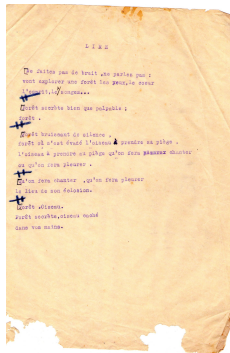 DIRE
Ne faites pas de bruit, ne parlez pas :
vont explorer une forêt les yeux, le coeur
l'esprit, les songes...
Forêt secrète bien que palpable ;
forêt .
Forêt bruissant de silence .
Forêt où s'est évadé l'oiseau à prendre au piège .
l'oiseau à prendre au piège qu'on fera chanter
ou qu'on fera pleurer .
Qu'on fera chanter , qu'on fera pleurer
le lieu de son éclosion.
Forêt .Oiseau.
Forêt secrète, oiseau caché
dans vos mains.